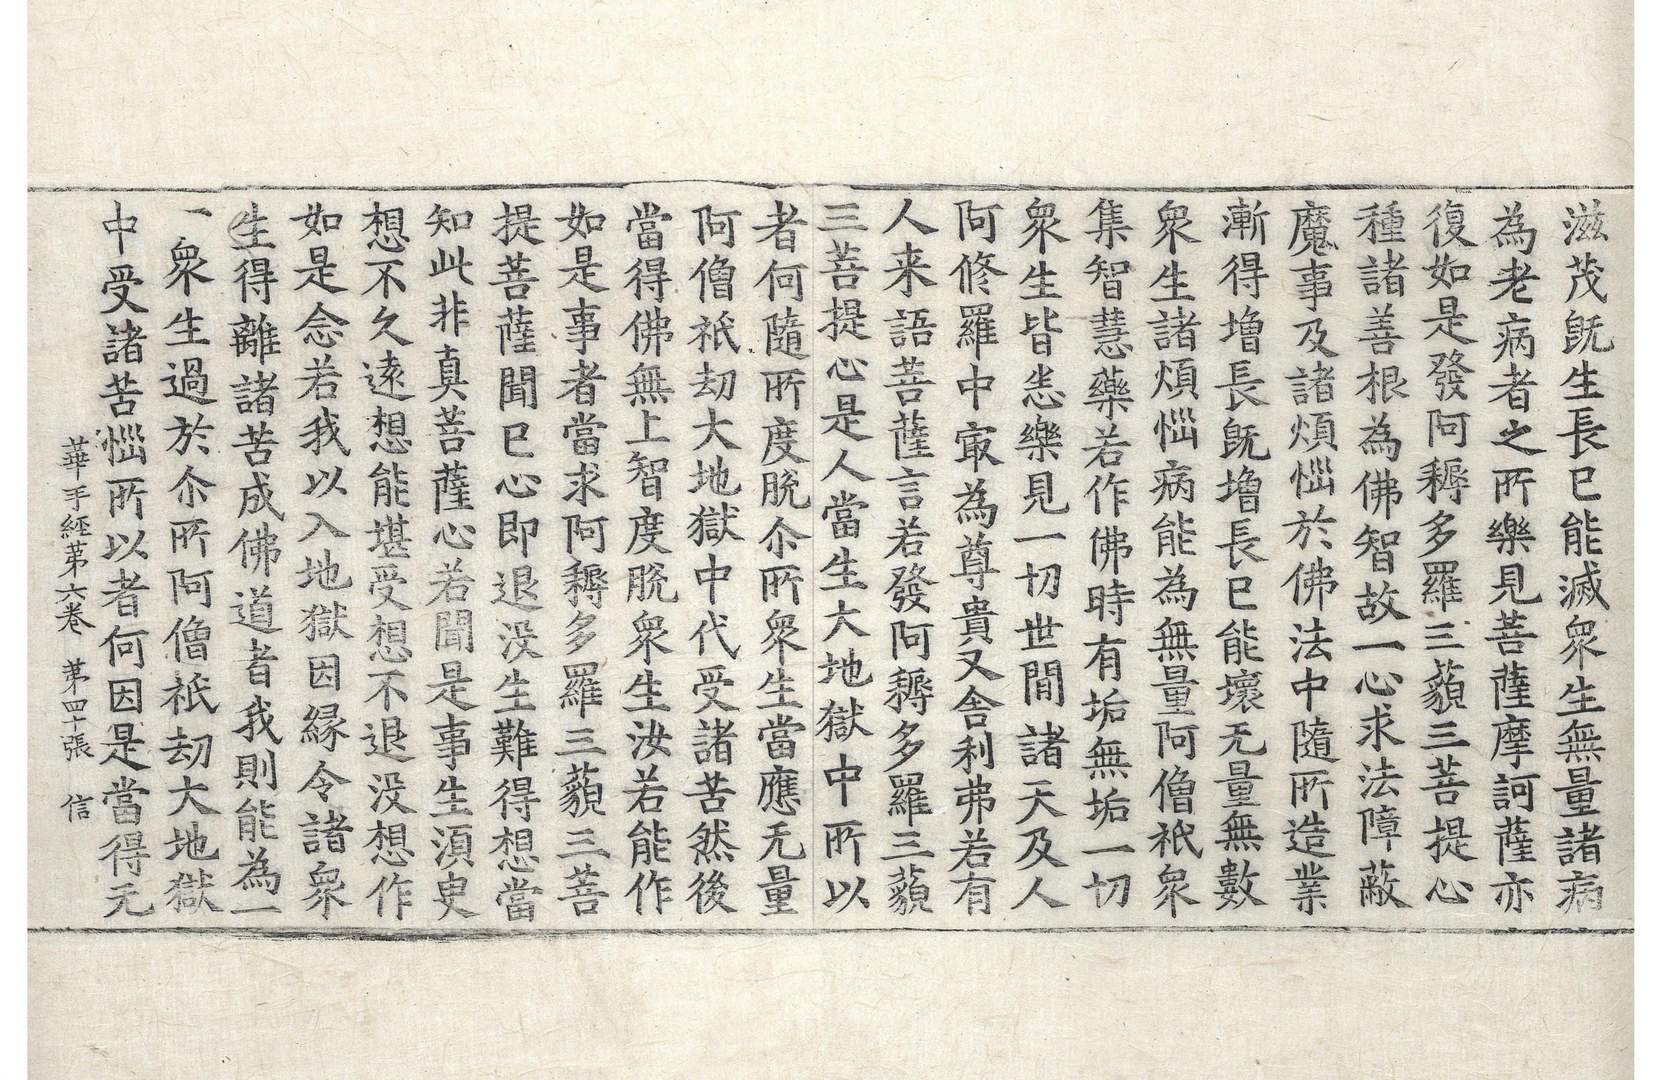 滋茂旣生長已能滅衆生無量諸病
為老病者之所樂見菩薩摩訶薩亦
復如是發阿耨多羅三藐三菩提心
種諸善根為佛智故一心求法障蔽
魔事及諸煩惱於佛法中隨所造業
漸得增長旣增長已能壞无量無數
衆生諸煩惱病能為無量阿僧祇衆
集智慧藥若作佛時有垢無垢一切
衆生皆悉樂見一切世間諸天及人
阿修羅中㝡為尊貴又舍利弗若有
人来語菩薩言若發阿耨多羅三藐
三菩提心是人當生大地獄中所以
者何隨所度脫尒所衆生當應无量
阿僧祇劫大地獄中代受諸苦然後
當得佛無上智度脫衆生汝若能作
如是事者當求阿耨多羅三藐三菩
提菩薩聞已心即退没生難得想當
知此非真菩薩心若聞是事生湏臾
想不久遠想能堪受想不退没想作
如是念若我以入地獄因縁令諸衆
生得離諸苦成佛道者我則能為一
一衆生過於尒所阿僧祇劫大地獄
中受諸苦惱所以者何因是當得无
華手經第六卷 第四十張 信